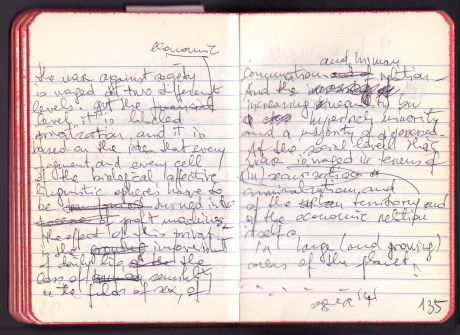 economic
the war against society
is waged at two different
levels. At the financial
level, it is labeled
privatization, and it is
based on the idea that every
fragment and every cell
of the biological, affective
linguistic spheres have to
be turned into
profit machines.
The effect of this privat
is the improvement
of daily life the the
loss of sensibi
in the fields of sex, of
and human
communication and relation
And the
increasing inequality btw
a hyperrich minority
and a majority of
At the social level that
war is waged in terms of
criminalization, and
of the territory and
of the economic relation
itself.
In large (and growing)
areas of the planet
135